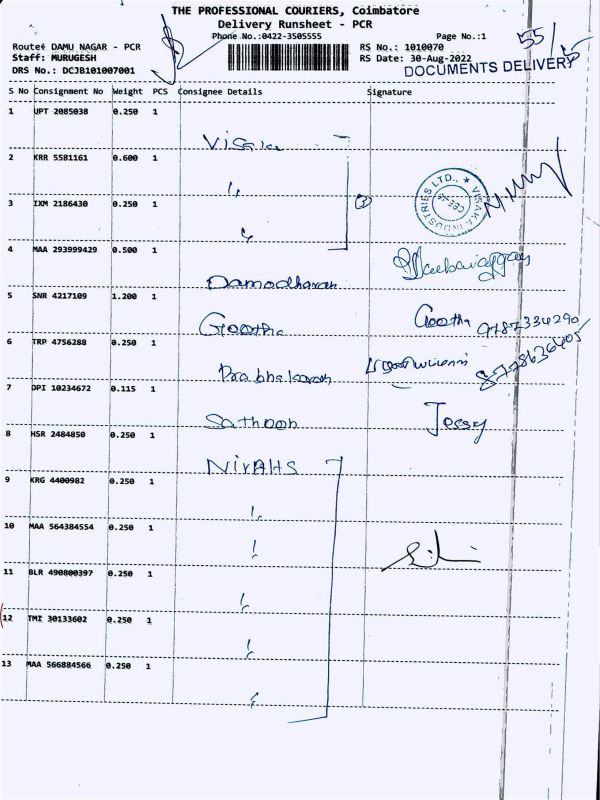 THE PROFESSIONAL COURIERS, Coimbatore
Delivery Runsheet - PCR
Phone No.:0422-3505555
Page No.:1
55/5
Route: DAMU NAGAR - PCR
RS No.: 1010070
Staff: MURUGESH
RS Date: 30-Aug-2022
DRS No.: DCJB101007001
DOCUMENTS DELIVERY
S No Consignment No Weight PCS Consignee Details Signature
1 UPT 2085038 0.250 1
2 KRR 5581161 0.600 1
3
VISAKA INDUSTRIES LTD.,
3 IXM 2186430 0.250 1
4 MAA 293999429 0.500 1 Damodharan
5 SNR 4217109 1.200 1 Geetha Geetha 9787334290
6 TRP 4756288 0.250 1 Prabhakaran 8778636405
7 DPI 10234672 0.115 1 Jessy
8 HSR 2484850 0.250 1
9 KRG 4400982 0.250 1
10 MAA 564384554 0.250 1
11 BLR 490800397 0.250 1
12 TMI 30133602 0.250 1
13 MAA 566884566 0.250 1